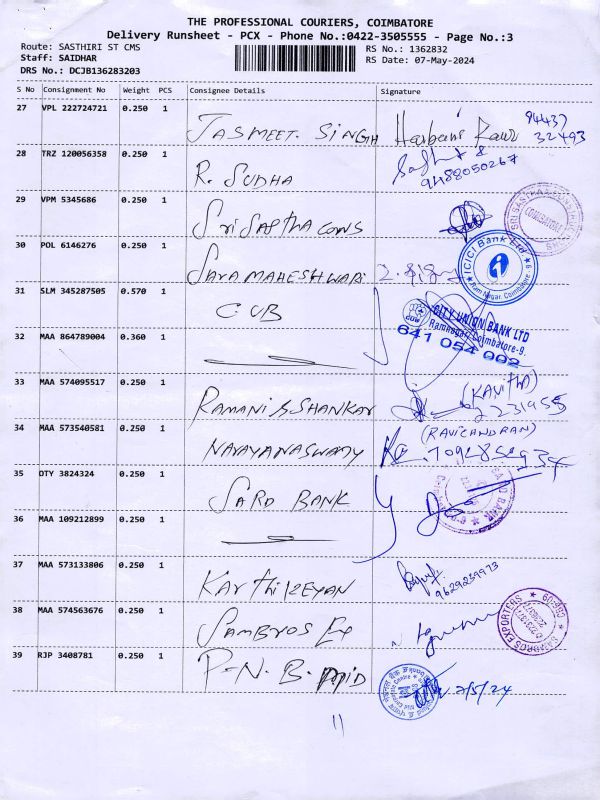 THE PROFESSIONAL COURIERS, COIMBATORE
Delivery Runsheet - PCX - Phone No.:0422-3505555 - Page No.:3
Route: SASTHIRI ST CMS
RS No.: 1362832
Staff: SAIDHAR
RS Date: 07-May-2024
DRS No.: DCJB136283203
S No Consignment No Weight PCS Consignee Details Signature
27 VPL 222724721 0.250 1 JASMEET. SINGH Harbans Kaur 94437 32493
28 TRZ 120056358 0.250 1 R. SUDHA 9488050267
29 VPM 5345686 0.250 1 Sri Sastha cons
COIMBATORE
30 POL 6146276 0.250 1 Sara MAHESHWARI
ICICI Bank Ltd
Ram Nagar, Coimbatore - 9
31 SLM 345287505 0.570 1 CUB
CUB
CITY UNION BANK LTD
Ramnagar, Coimbatore-9.
641 054 002
32 MAA 864789004 0.360 1
33 MAA 574095517 0.250 1 RAMANI S SHANKAR (KAVITHA)
34 MAA 573540581 0.250 1 NARAYANASWAMY (RAVICANDRAN)
35 DTY 3824324 0.250 1 SARD BANK
36 MAA 109212899 0.250 1
37 MAA 573133806 0.250 1 KARTHIKEYAN 9629239973
38 MAA 574563676 0.250 1 SAMBROS Exp
39 RJP 3408781 0.250 1 P.N.B. 2/5/24
11